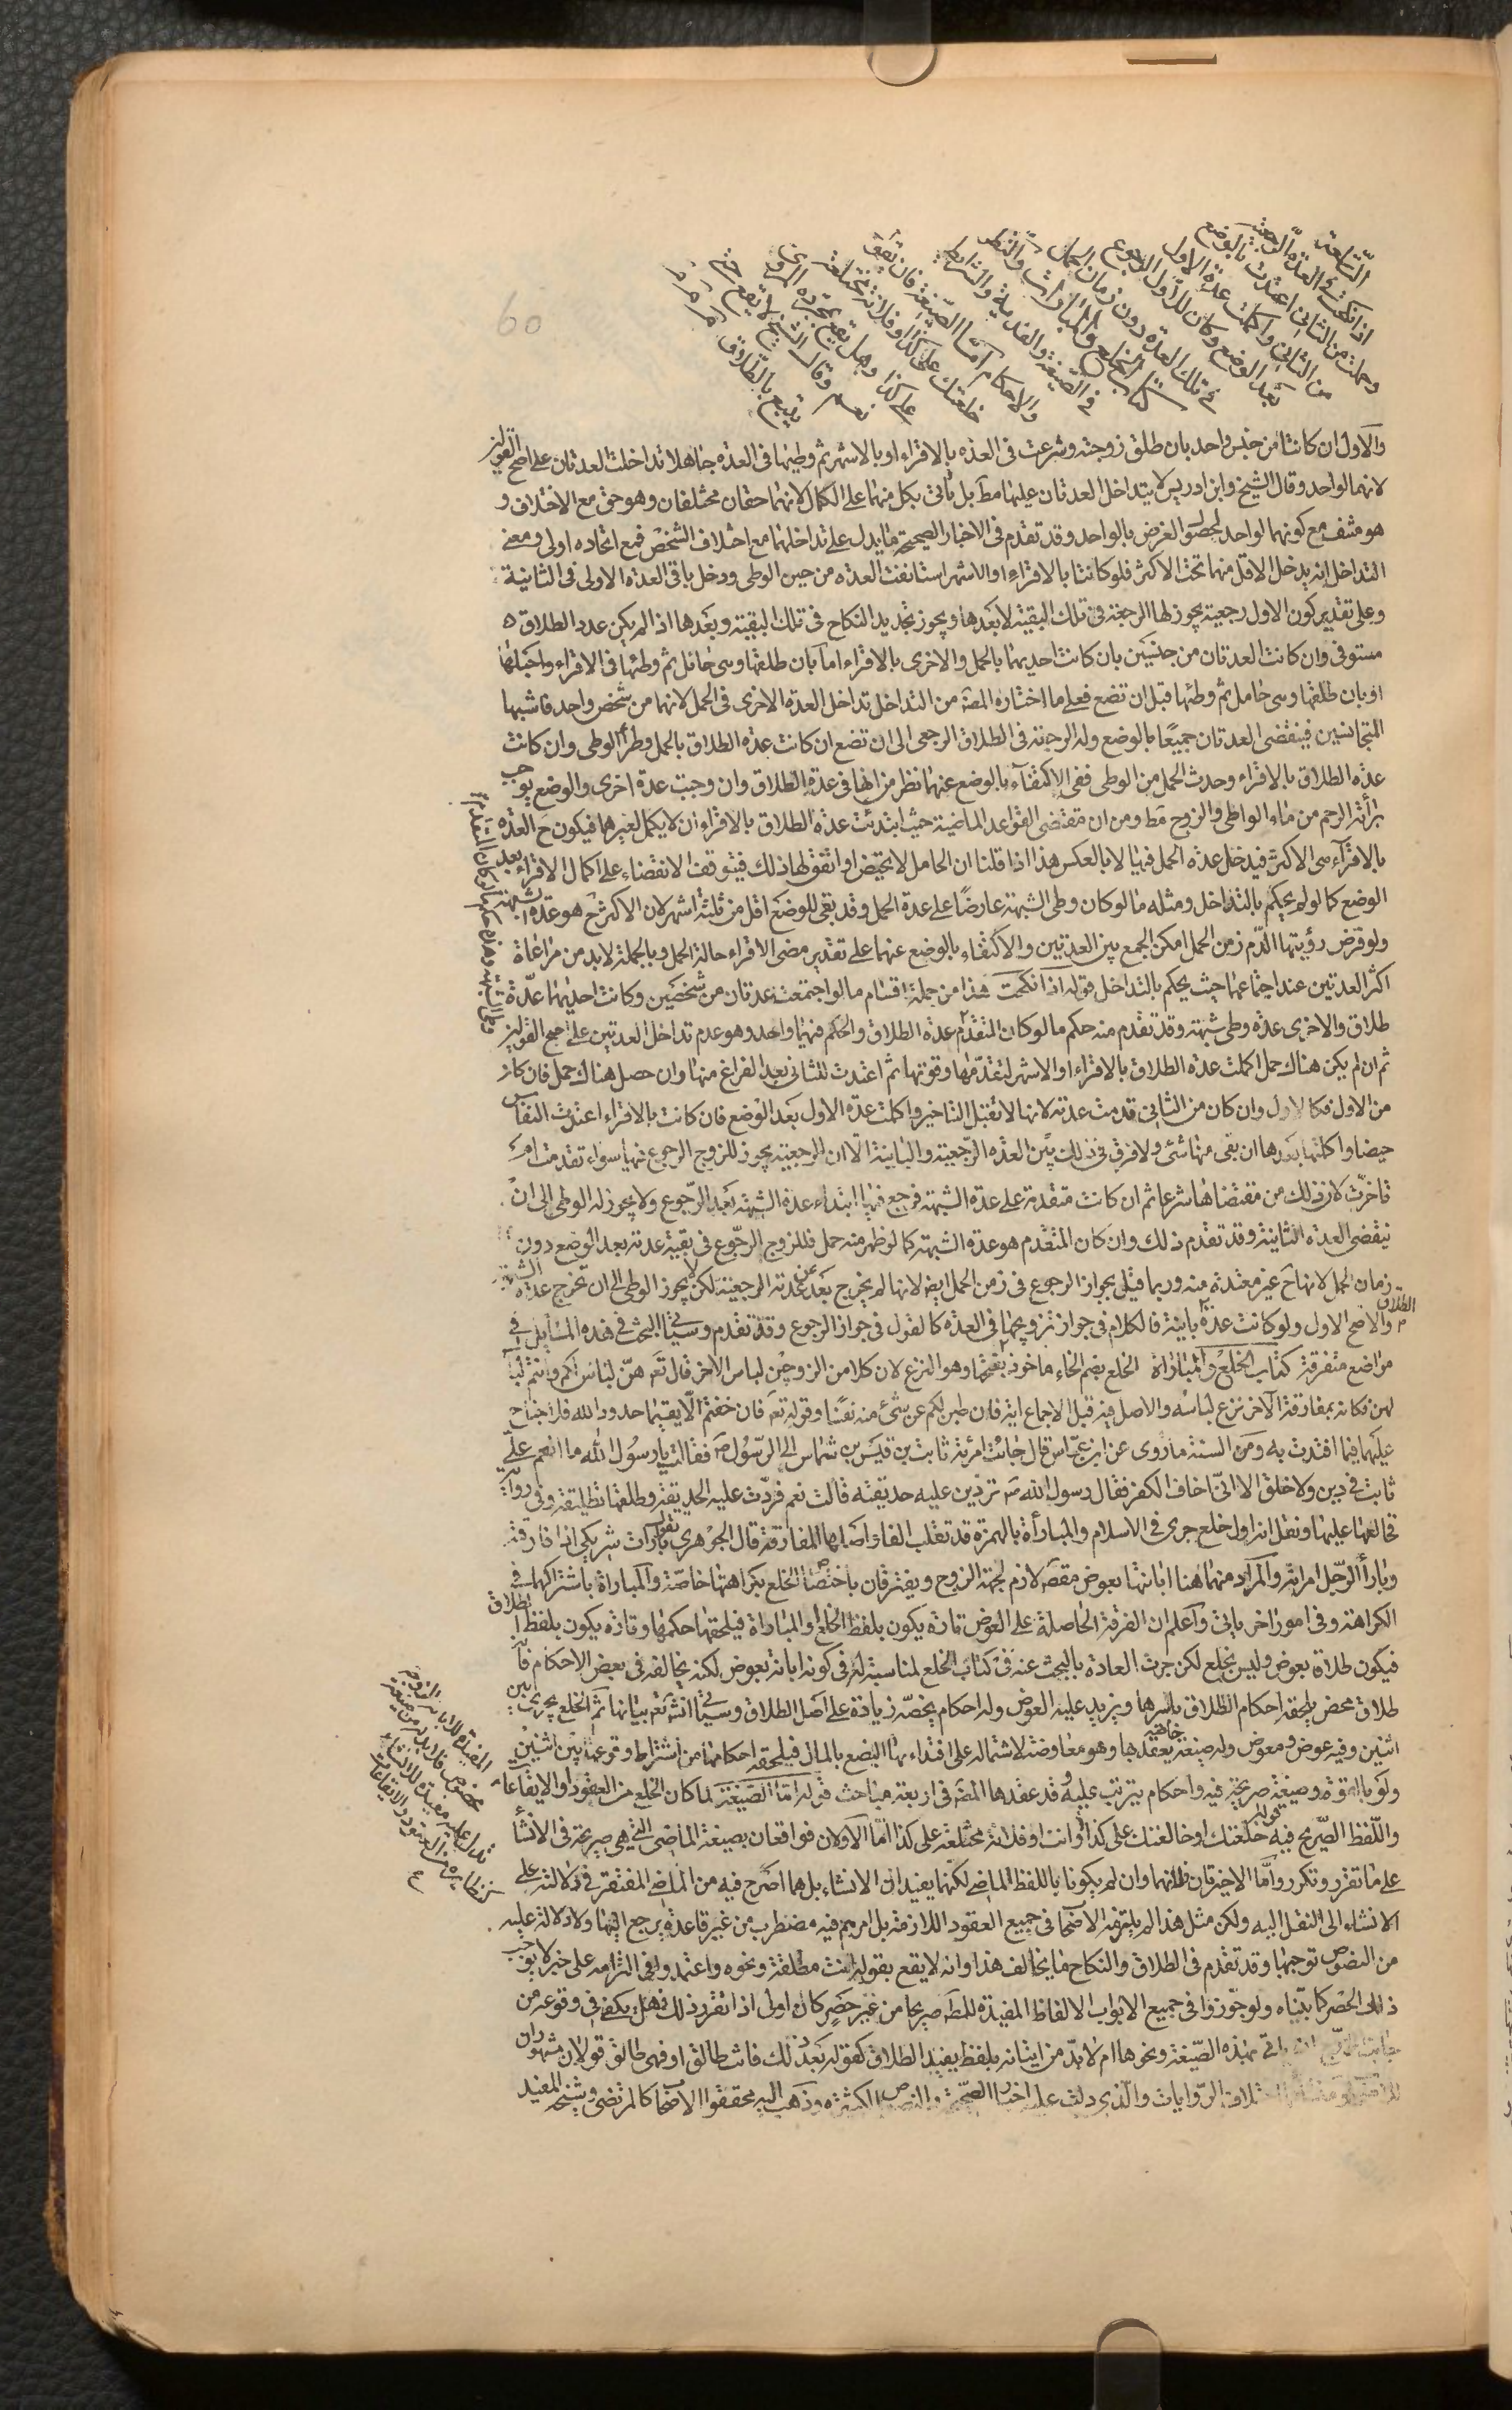 التاسعة
اذا نكحت في العدة الرجعية
وحملت من الثاني اعتدت بالوضع
من الثاني واكملت عدة الاول
بعد الوضع وكان للاول الرجوع
في تلك العدة دون زمان الحمل
كتاب الخلع والمبارات والنظر
في الصيغة والفدية والشرايط
والاحكام اما الصيغة فان تقول
خلعتك على كذا او فلانة مختلعة
على كذا وهل يقع بمجرده المروي
نعم وقال الشيخ لا يقع حتى
يتبع بالطلاق
والاول ان كانتا من جنس واحد بان طلق زوجته وشرعت في العدة بالاقراء او بالاشهر ثم وطيها في العدة جاهلا تداخلت العدتان على اصح القولين
لانهما لواحد وقال الشيخ وابن ادريس لا يتداخل العدتان عليها مط بل تاتي بكل منهما على الكمال لانهما حقان مختلفان وهو حق مع الاختلاف و
هو منتف مع كونهما لواحد لحصول الغرض بالواحد وقد تقدم في الاخبار الصحيحة ما يدل على تداخلهما مع اختلاف الشخص فمع اتحاده اولى ومعنى
التداخل انه يدخل الاقل منهما تحت الاكثر فلو كانتا بالاقراء او الاشهر استانفت العدة من حين الوطى ودخل باقي العدة الاولى في الثانية
وعلى تقدير كون الاول رجعية يجوز لها الرجعة في تلك البقية لا بعدها ويجوز تجديد النكاح في تلك البقية وبعدها اذا لم يكن عدد الطلاق
مستوفى وان كانت العدتان من جنسين بان كانت احديهما بالحمل والاخرى بالاقراء اما بان طلقها وهي حائل ثم وطئها في الاقراء واحبلها
او بان طلقها وهي حامل ثم وطئها قبل ان تضع فعلى ما اختاره المص من التداخل تداخل العدة الاخرى في الحمل لانهما من شخص واحد فاشبها
المتجانسين فينقضي العدتان جميعا بالوضع وله الرجعة في الطلاق الرجعي الى ان تضع ان كانت عدة الطلاق بالحمل وطرأ الوطى وان كانت
عدة الطلاق بالاقراء وحدث الحمل من الوطى ففي الاكتفاء بالوضع عنهما نظر من انها في عدة الطلاق وان وجبت عدة اخرى والوضع يوجب
برأة الرحم من ماء الواطى والزوج مط ومن ان مقتضى القواعد الماضية حيث ابتدئت عدة الطلاق بالاقراء ان لا يكمل لغيرهما فيكون ح العدة
بالاقراء هي الاكثر فيدخل عدة الحمل فيها لا بالعكس هذا اذا قلنا ان الحامل لا تحيض او اتفق لها ذلك فيتوقف الانقضاء على اكمال الاقراء بعد
الوضع كما لو لم يحكم بالتداخل ومثله ما لو كان وطى الشبهة عارضا على عدة الحمل وقد بقى للوضع اقل من ثلثة اشهر لان الاكثر ح هو عدة الشبهة
ولو فرض رؤيتها الدم زمن الحمل امكن الجمع بين العدتين والاكتفاء بالوضع عنهما على تقدير مضى الاقراء حالة الحمل وبالجملة لا بد من مراعاة
اكثر العدتين عند اجتماعهما حيث يحكم بالتداخل قوله اذا نكحت هذا من جملة اقسام ما لو اجتمعت عدتان من شخصين وكانت احديهما عدة
طلاق والاخرى عدة وطى شبهة وقد تقدم منه حكم ما لو كان المتقدم عدة الطلاق والحكم فيهما واحد وهو عدم تداخل العدتين على اصح القولين
ثم ان لم يكن هناك حمل اكملت عدة الطلاق بالاقراء او الاشهر لتقدمها وقوتها ثم اعتدت للثاني بعد الفراغ منها وان حصل هناك حمل فان كان
من الاول فكالاول وان كان من الثاني قدمت عدته لانها لا تقبل التاخير واكملت عدة الاول بعد الوضع فان كانت بالاقراء اعتدت النفاس
حيضا واكملتها بعدها ان بقى منها شئ ولا فرق في ذلك بين العدة الرجعية والباينة الا ان الرجعية يجوز للزوج الرجوع فيها سواء تقدمت ام
تاخرت لان ذلك من مقتضاها شرعا ثم ان كانت متقدمة على عدة الشبهة فرجع فيها ابتداء عدة الشبهة بعد الرجوع ولا يجوز له الوطى الى ان
ينقضي العدة الثانية وقد تقدم ذلك وان كان المتقدم هو عدة الشبهة كما لو ظهر منه حمل فللزوج الرجوع في بقية عدته بعد الوضع دون
زمان الحمل لانها ح غير معتدة منه وربما قيل بجواز الرجوع في زمن الحمل ايضا لانها لم يخرج بعد عن عدته الرجعية لكن لا يجوز الوطى الى ان تخرج عدة الشبهة
والاصح الاول ولو كانت عدة الطلاق باينة فالكلام في جواز تزويجها في العدة كالقول في جواز الرجوع وقد تقدم وسيأتي البحث في هذه المسايل في
مواضع متفرقة كتاب الخلع والمباراة الخلع بضم الخاء ماخوذ بفتحها وهو النزع لان كلا من الزوجين لباس الاخر قال تعه هن لباس لكم وانتم لباس
لهن فكانه بمفارقة الآخر نزع لباسه والاصل فيه قبل الاجماع اية فان طبن لكم عن شئ منه نفسا وقوله تعه فان خفتم الا يقيما حدود الله فلا جناح
عليهما فيما افتدت به ومن السنة ما روى عن ابن عباس قال جائت امرئة ثابت بن قيس بن شماس الى الرسول ص فقالت يا رسول الله ما انقم على
ثابت في دين ولا خلق الا انى اخاف الكفر فقال رسول الله ص تردين عليه حديقته قالت نعم فردت عليه الحديقة وطلقها تطليقة وفي رواية
فخالعها عليها ونقل انه اول خلع جرى في الاسلام والمبارأة بالهمزة قد تقلب الفا واصلها المفارقة قال الجوهري تقول بارأت شريكي اذا فارقته
وبارأ الرجل امرئته والمراد منهما هنا ابانتها بعوض مقصود لازم لجهة الزوج ويفترقان باختصاص الخلع بكراهتها خاصة والمباراة باشتراكهما في
الكراهة وفي امور اخر ياتي واعلم ان الفرقة الحاصلة على العوض تارة يكون بلفظ الخلع والمباراة فيلحقها حكمها وتارة يكون بلفظ الطلاق
فيكون طلاقا بعوض وليس بخلع لكن جرت العادة بالبحث عنه في كتاب الخلع لمناسبته له في كونه ابانة بعوض لكنه يخالفه في بعض الاحكام فانه
طلاق محض يلحقه احكام الطلاق باسرها ويزيد عليه العوض وله احكام يخصه زيادة على اصل الطلاق وسيأتي انش تعه بيانها ثم الخلع يجري بين
اثنين وفيه عوض ومعوض وله صيغة خاصة يعقدها وهو معاوضة لاشتماله على افتدائها البضع بالمال فيلحقه احكامها من اشتراط وقوعها بين اثنين
ولو بالقوة وصيغة صريحة فيه واحكام يترتب عليه وقد عقدها المص في اربعة مباحث قوله اما الصيغة لما كان الخلع من العقود او الايقاعات
واللفظ الصريح فيه قوله خلعتك او خالعتك على كذا او انت او فلانة مختلعة على كذا اما الاولان فواقعان بصيغة الماضي التي هي صريحة في الانشاء
على ما تقرر وتكرر واما الاخيرتان فلانهما وان لم يكونا باللفظ الماضي لكنهما يفيدان الانشاء بل هما اصرح فيه من الماضي المفتقر في دلالته على
الانشاء الى النقل اليه ولكن مثل هذا لم يلتزمه الاصحاب في جميع العقود اللازمة بل امرهم فيه مضطرب من غير قاعدة يرجع اليها ولا دلالة عليه
من النصوص توجبها وقد تقدم في الطلاق والنكاح ما يخالف هذا وانه لا يقع بقوله انت مطلقة ونحوه واعتمدوا في التزامه على خبر لا يوجب
ذلك الحصر كما بيناه ولو جوزوا في جميع الابواب الالفاظ المفيدة للمط صريحا من غير حصر كان اولى اذا تقرر ذلك فهل يكفي في وقوعه من
جانب الزوج الاتيان بهذه الصيغة ونحوها ام لا بد من اتيانه بلفظ يفيد الطلاق كقوله بعد ذلك فانت طالق او فهي طالق قولان مشهوران
اختلاف الروايات والذي دلت عليه الاخبار الصحيحة والنصوص الكثيرة وذهب اليه محققوا الاصحاب كالمرتضى وشيخه المفيد